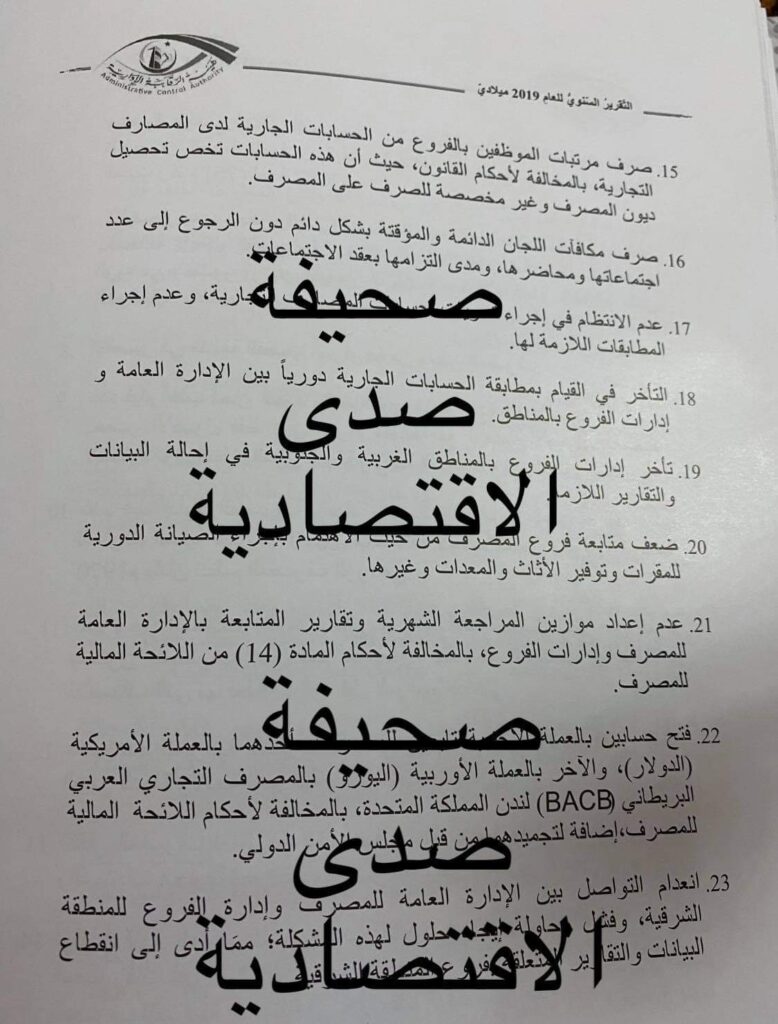 هيئة الرقابة الإدارية
Administrative Control Authority
التقرير السنوي للعام 2019 ميلادي
15. صرف مرتبات الموظفين بالفروع من الحسابات الجارية لدى المصارف
التجارية، بالمخالفة لأحكام القانون، حيث أن هذه الحسابات تخص تحصيل
ديون المصرف وغير مخصصة للصرف على المصرف.
16. صرف مكافآت اللجان الدائمة والمؤقتة بشكل دائم دون الرجوع إلى عدد
اجتماعاتها ومحاضرها، ومدى التزامها بعقد الاجتماعات.
صحيفة
17. عدم الانتظام في إجراء المصارف التجارية، وعدم إجراء
المطابقات اللازمة لها.
18. التأخر في القيام بمطابقة الحسابات الجارية دورياً بين الإدارة العامة و
إدارات الفروع بالمناطق.
صدى
19. تأخر إدارات الفروع بالمناطق الغربية والجنوبية في إحالة البيانات
والتقارير اللازمة.
الاقتصادية
20. ضعف متابعة فروع المصرف من حيث الاهتمام بإجراء الصيانة الدورية
للمقرات وتوفير الأثاث والمعدات وغيرها.
21. عدم إعداد موازين المراجعة الشهرية وتقارير المتابعة بالإدارة العامة
للمصرف وإدارات الفروع، بالمخالفة لأحكام المادة (14) من اللائحة المالية
للمصرف.
صحيفة
22. فتح حسابين بالعملة أحدهما بالعملة الأمريكية
(الدولار)، والآخر بالعملة الأوربية (اليورو) بالمصرف التجاري العربي
البريطاني (BACB) لندن المملكة المتحدة، بالمخالفة لأحكام اللائحة المالية
للمصرف،إضافة لتجميدهما من قبل مجلس الأمن الدولي.
صدى
23. انعدام التواصل بين الإدارة العامة للمصرف وإدارة الفروع للمنطقة
الشرقية، وفشل محاولة إيجاد حلول لهذه المشكلة؛ ممّا أدى إلى انقطاع
البيانات والتقارير المتعلقة بفروع المنطقة الشرقية
الاقتصادية